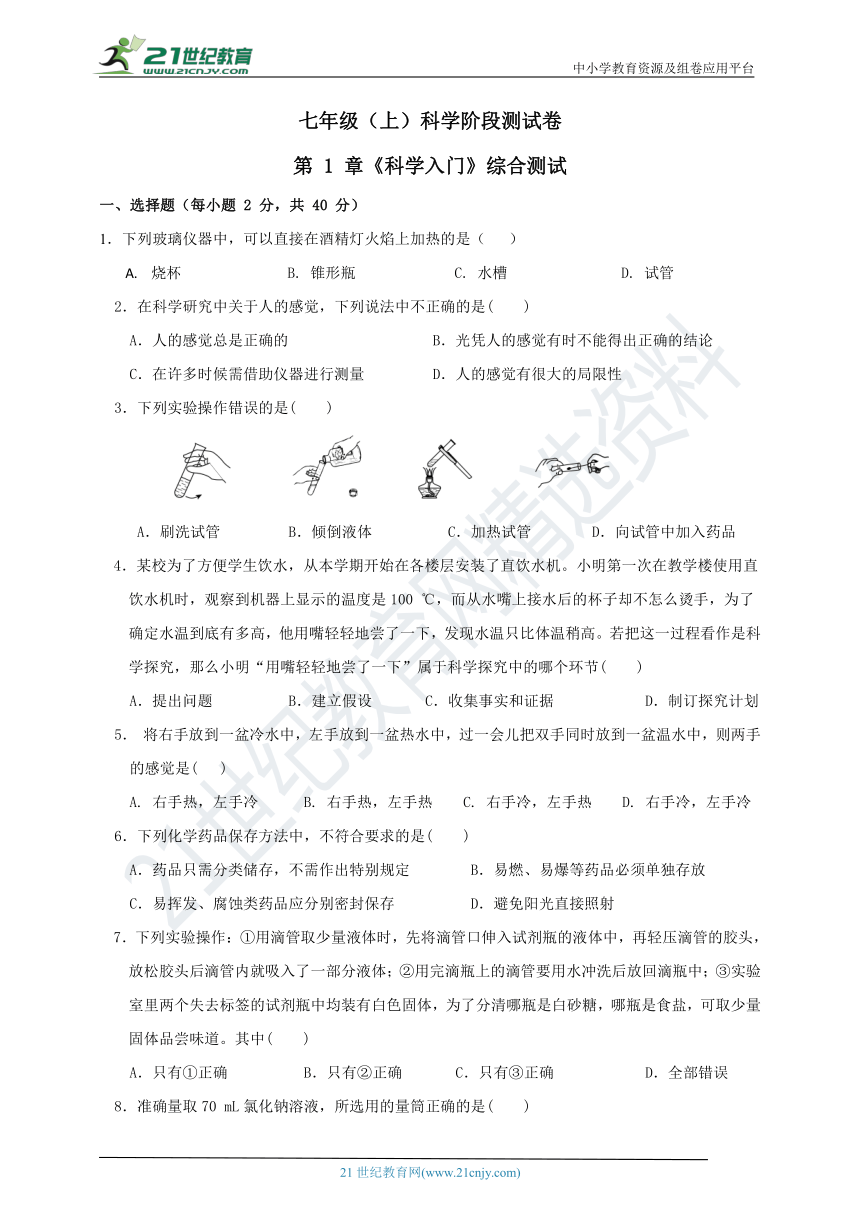 21世纪教育
WWW.21CNJY.COM
中小学教育资源及组卷应用平台
七年级（上）科学阶段测试卷
第 1 章《科学入门》综合测试
一、选择题（每小题 2 分，共 40 分）
1. 下列玻璃仪器中，可以直接在酒精灯火焰上加热的是（ ）
A. 烧杯 B. 锥形瓶 C. 水槽 D. 试管
2．在科学研究中关于人的感觉，下列说法中不正确的是( )
A．人的感觉总是正确的 B．光凭人的感觉有时不能得出正确的结论
C．在许多时候需借助仪器进行测量 D．人的感觉有很大的局限性
3．下列实验操作错误的是( )
A．刷洗试管 B．倾倒液体 C．加热试管 D．向试管中加入药品
4．某校为了方便学生饮水，从本学期开始在各楼层安装了直饮水机。小明第一次在教学楼使用直
饮水机时，观察到机器上显示的温度是100 ℃，而从水嘴上接水后的杯子却不怎么烫手，为了
确定水温到底有多高，他用嘴轻轻地尝了一下，发现水温只比体温稍高。若把这一过程看作是科
学探究，那么小明“用嘴轻轻地尝了一下”属于科学探究中的哪个环节( )
A．提出问题 B．建立假设 C．收集事实和证据 D．制订探究计划
5． 将右手放到一盆冷水中，左手放到一盆热水中，过一会儿把双手同时放到一盆温水中，则两手
的感觉是( )
A. 右手热，左手冷 B. 右手热，左手热 C. 右手冷，左手热 D. 右手冷，左手冷
6．下列化学药品保存方法中，不符合要求的是( )
A．药品只需分类储存，不需作出特别规定 B．易燃、易爆等药品必须单独存放
C．易挥发、腐蚀类药品应分别密封保存 D．避免阳光直接照射
7．下列实验操作：①用滴管取少量液体时，先将滴管口伸入试剂瓶的液体中，再轻压滴管的胶头，
放松胶头后滴管内就吸入了一部分液体；②用完滴瓶上的滴管要用水冲洗后放回滴瓶中；③实验
室里两个失去标签的试剂瓶中均装有白色固体，为了分清哪瓶是白砂糖，哪瓶是食盐，可取少量
固体品尝味道。其中( )
A．只有①正确 B．只有②正确 C．只有③正确 D．全部错误
8．准确量取70 mL氯化钠溶液，所选用的量筒正确的是( )
21世纪教育网精选资料
21世纪教育网(www.21cnjy.com)